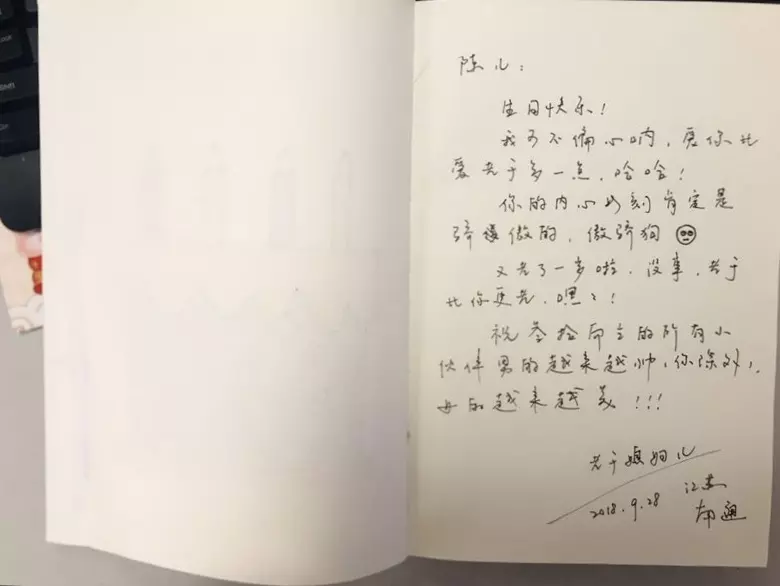 陈儿：
生日快乐！
我可不偏心呐，爱你比
爱老于多一点，哈哈！
你的内心此刻肯定是
骄傲的，傲骄狗
又老了一岁啦，没事，老于
比你更老，嘿嘿！
祝叁拾而立的所有小
伙伴男的越来越帅，你除外！
女的越来越美！！！
老于媳妇儿
2018.9.28 江苏
南通